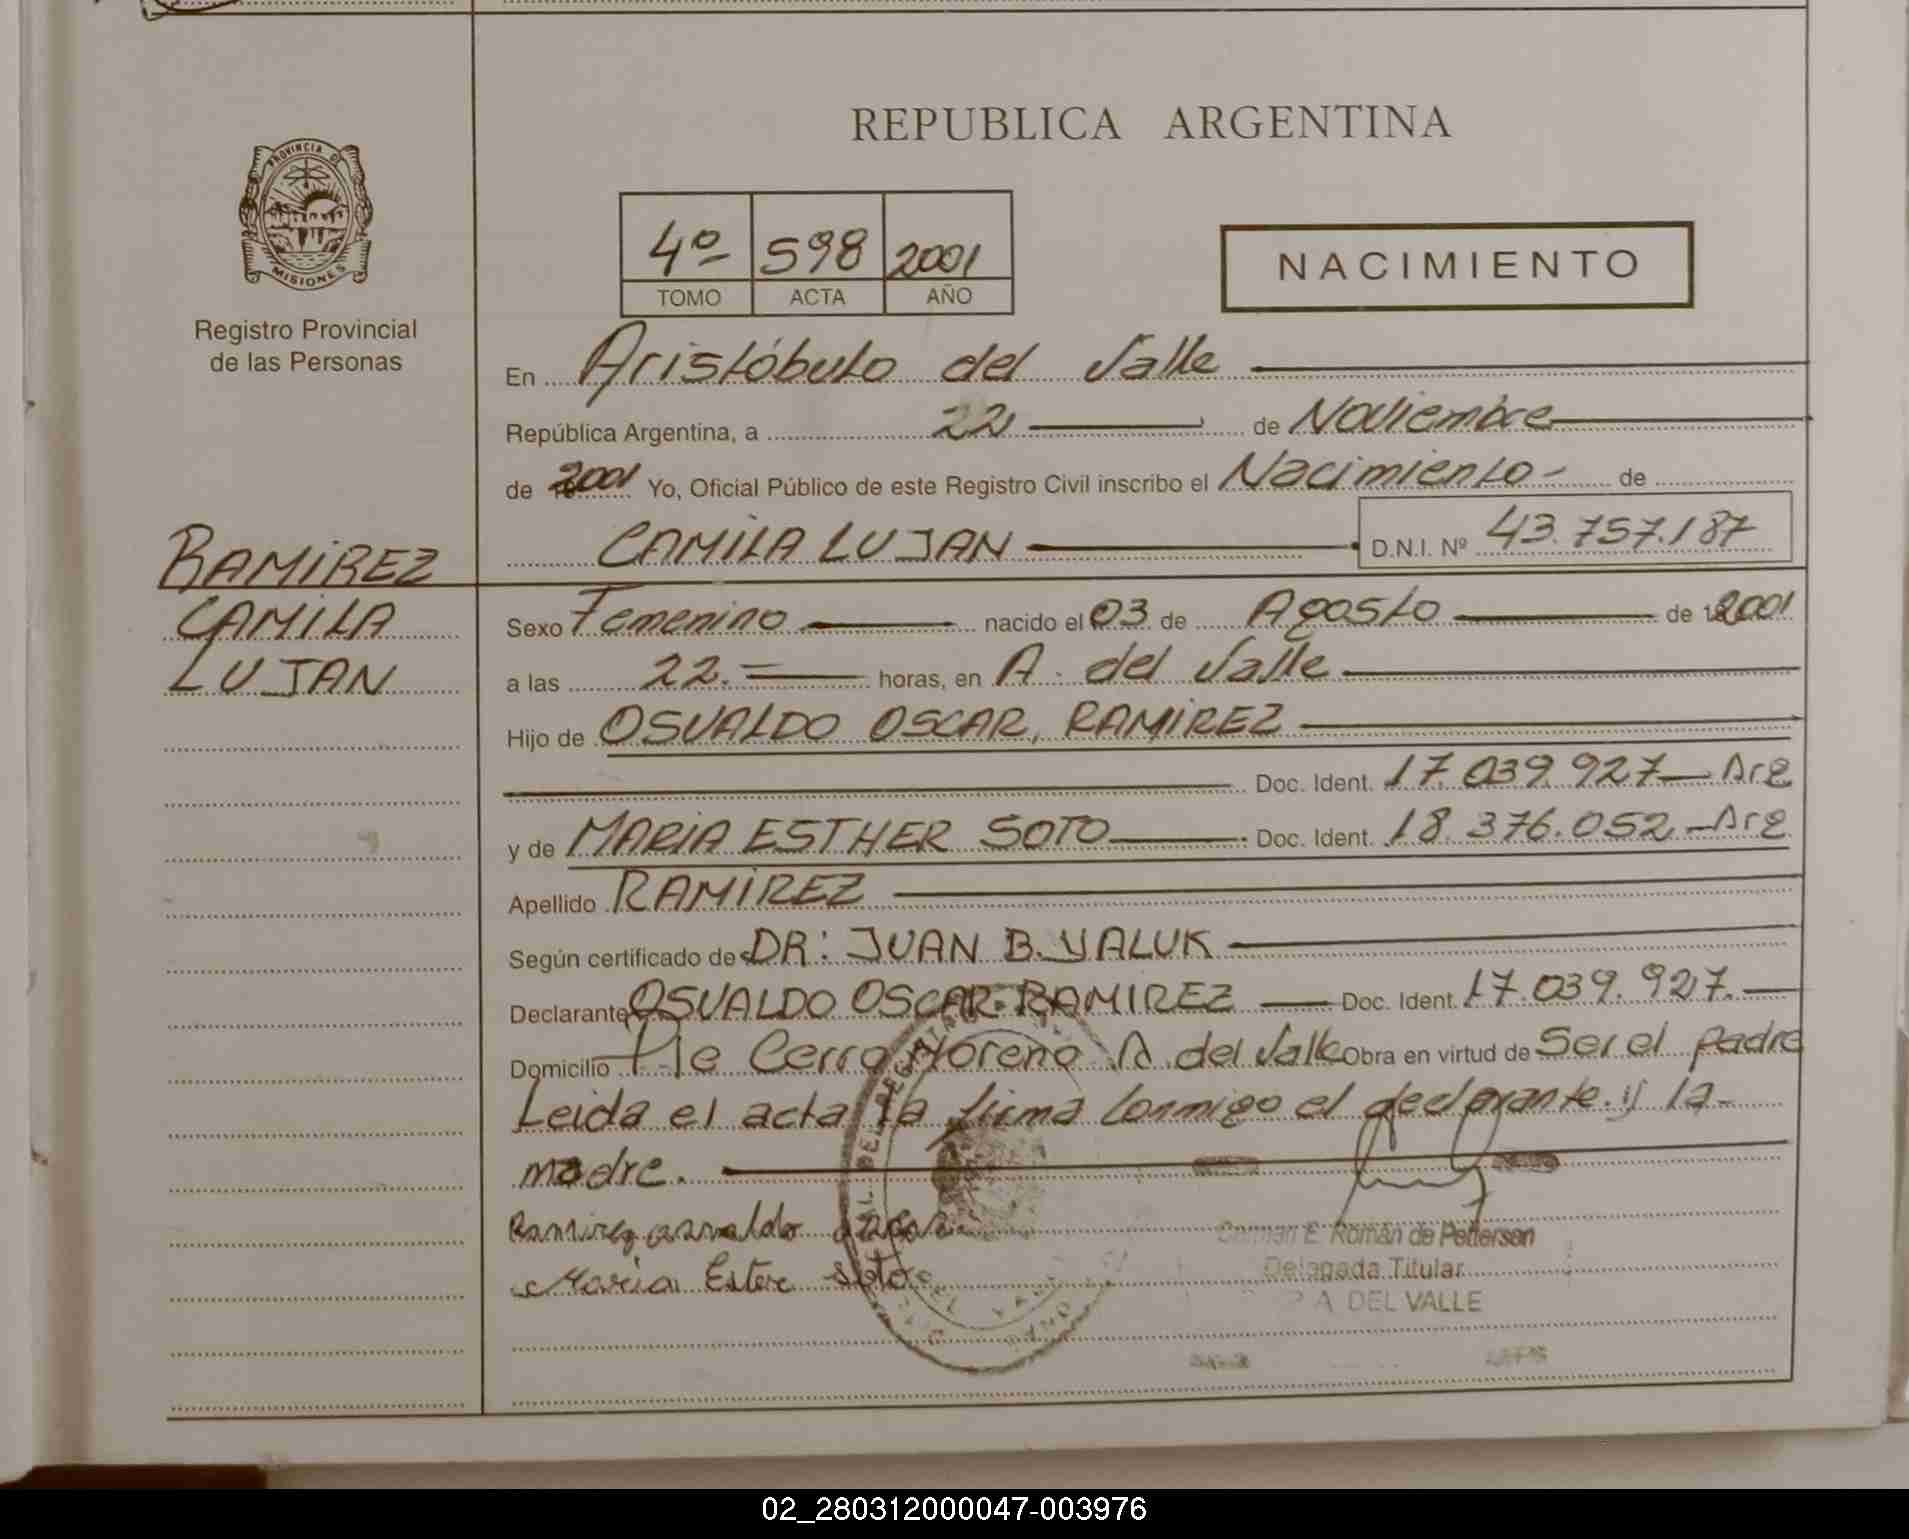 REPUBLICA ARGENTINA
PROVINCIA DE
MISIONES
Registro Provincial
de las Personas
4º 598 2001
TOMO ACTA AÑO
NACIMIENTO
En Aristóbulo del Valle
República Argentina, a 22 de Noviembre
de 2001 Yo, Oficial Público de este Registro Civil inscribo el Nacimiento - de
CAMILA LUJAN D.N.I. Nº 43.757.187
RAMIREZ
CAMILA
LUJAN
Sexo Femenino nacido el 03 de Agosto de 2001
a las 22.= horas, en A. del Valle
Hijo de OSVALDO OSCAR, RAMIREZ
Doc. Ident. 17.039.927 - Arg
y de MARIA ESTHER SOTO Doc. Ident. 18.376.052 - Arg
Apellido RAMIREZ
Según certificado de DR: JUAN B. YALUK
Declarante OSVALDO OSCAR RAMIREZ Doc. Ident. 17.039.927.
Domicilio Pje Cerro Moreno A. del Valle Obra en virtud de Ser el padre
Leida el acta la firma conmigo el declarante y la
madre.
Ramirez osvaldo oscar
Maria Ester Soto
E. Román de Pettersen
Delegada Titular
A. DEL VALLE
02_280312000047-003976